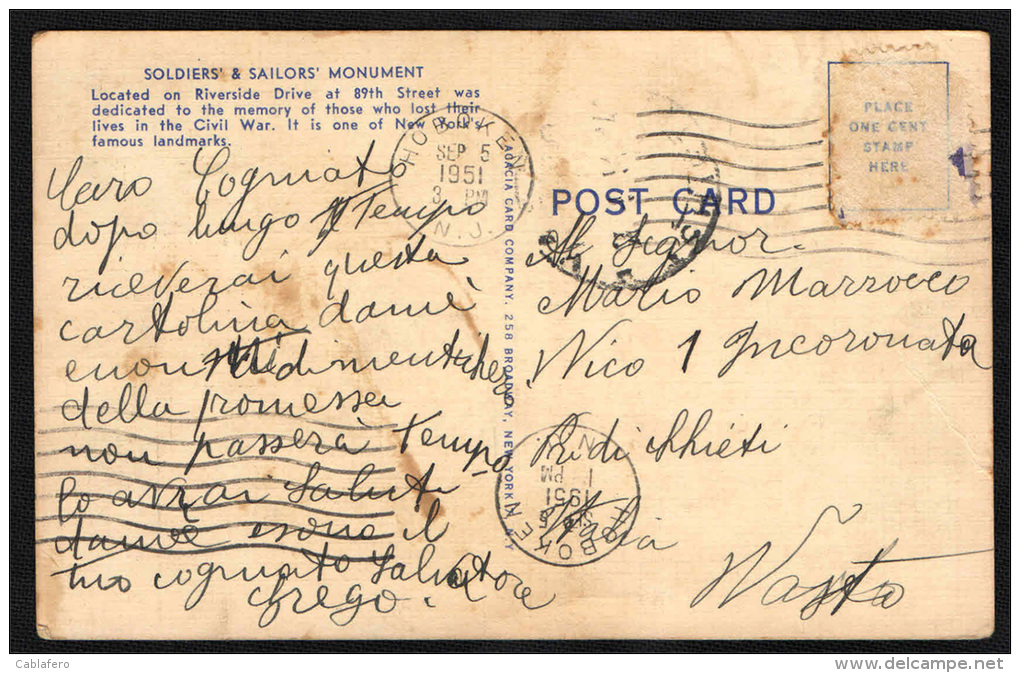 SOLDIERS' & SAILORS' MONUMENT
Located on Riverside Drive at 89th Street was
dedicated to the memory of those who lost their
lives in the Civil War. It is one of New York's
famous landmarks.
Caro Cogniato
dopo lungo Tempo
riceverai questa
cartolina damè
enon dimentichero
della promessa
non passerà Tempo
lo avrai Saluti
damè esono il
tuo cogniato Salvatore
Grego.
HOBOKEN
SEP 5
1951
PM
N.J.
ACACIA CARD COMPANY, 258 BROADWAY, NEW YORK N.Y.
POST CARD
PLACE
ONE CENT
STAMP
HERE
Al Signor.
Mario Marzocco
Vico 1 Incoronata
Prdi Chieti
Italia
Vasto
HOBOKEN
SEP 5
1951
1 PM
N.J.
Cablafero
www.delcampe.net